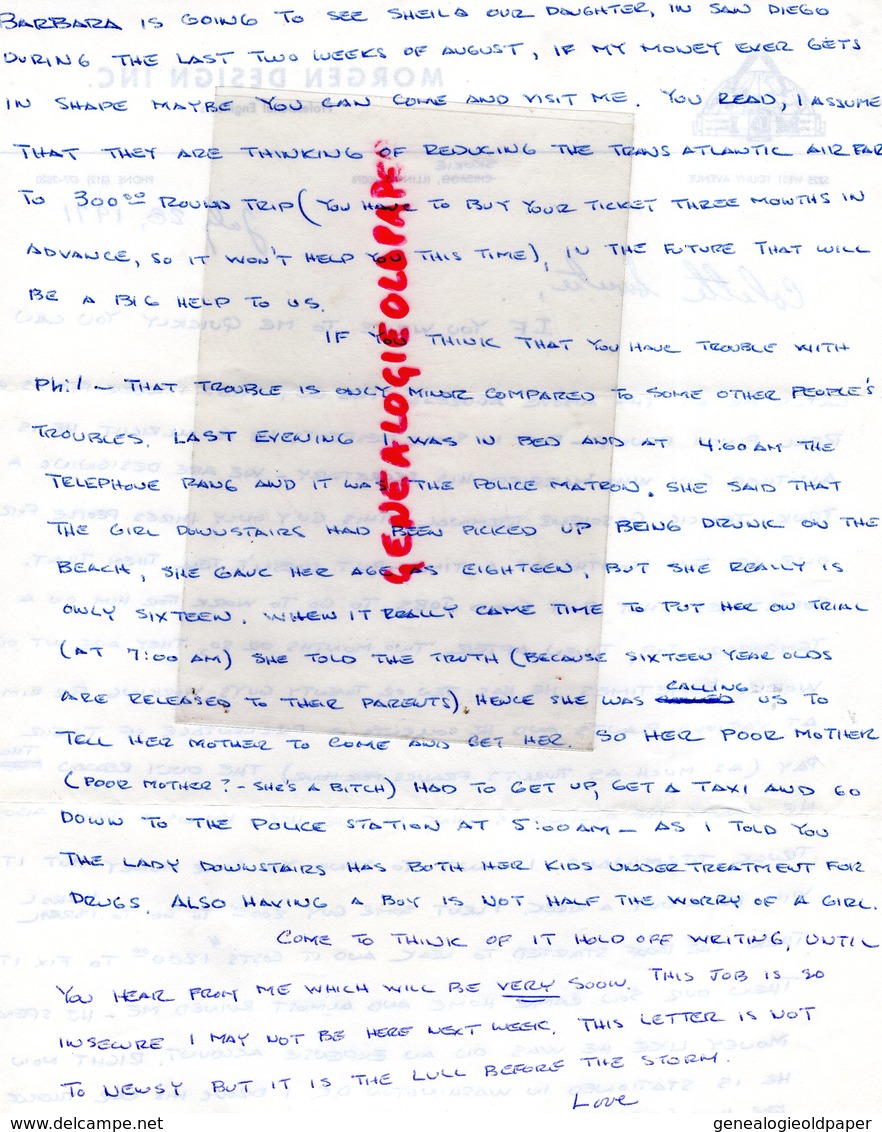 BARBARA IS GOING TO SEE SHEILA OUR DAUGHTER, IN SAN DIEGO
DURING THE LAST TWO WEEKS OF AUGUST, IF MY MONEY EVER GETS
IN SHAPE MAYBE YOU CAN COME AND VISIT ME. YOU READ, I ASSUME
THAT THEY ARE THINKING OF REDUCING THE TRANS ATLANTIC AIR FAR
TO 300.00 ROUND TRIP (YOU HAVE TO BUY YOUR TICKET THREE MONTHS IN
ADVANCE, SO IT WON'T HELP YOU THIS TIME), IN THE FUTURE THAT WILL
BE A BIG HELP TO US.
IF YOU THINK THAT YOU HAVE TROUBLE WITH
Phil - THAT TROUBLE IS ONLY MINOR COMPARED TO SOME OTHER PEOPLE'S
TROUBLES. LAST EVENING I WAS IN BED AND AT 4:60 AM THE
TELEPHONE RANG AND IT WAS THE POLICE MATRON. SHE SAID THAT
THE GIRL DOWNSTAIRS HAD BEEN PICKED UP BEING DRUNK ON THE
BEACH, SHE GAVE HER AGE AS EIGHTEEN, BUT SHE REALLY IS
ONLY SIXTEEN. WHEN IT REALLY CAME TIME TO PUT HER ON TRIAL
(AT 7:00 AM) SHE TOLD THE TRUTH (BECAUSE SIXTEEN YEAR OLDS
ARE RELEASED TO THEIR PARENTS), HENCE SHE WAS CALLING US TO
TELL HER MOTHER TO COME AND GET HER. SO HER POOR MOTHER
(POOR MOTHER? - SHE'S A BITCH) HAD TO GET UP, GET A TAXI AND GO
DOWN TO THE POLICE STATION AT 5:00 AM - AS I TOLD YOU
THE LADY DOWNSTAIRS HAS BOTH HER KIDS UNDER TREATMENT FOR
DRUGS. ALSO HAVING A BOY IS NOT HALF THE WORRY OF A GIRL.
COME TO THINK OF IT HOLD OFF WRITING, UNTIL
YOU HEAR FROM ME WHICH WILL BE VERY SOON. THIS JOB IS SO
INSECURE I MAY NOT BE HERE NEXT WEEK. THIS LETTER IS NOT
TO NEWSY BUT IT IS THE LULL BEFORE THE STORM.
Love
GENEALOGIEOLDPAPER
delcampe.net
genealogieoldpaper